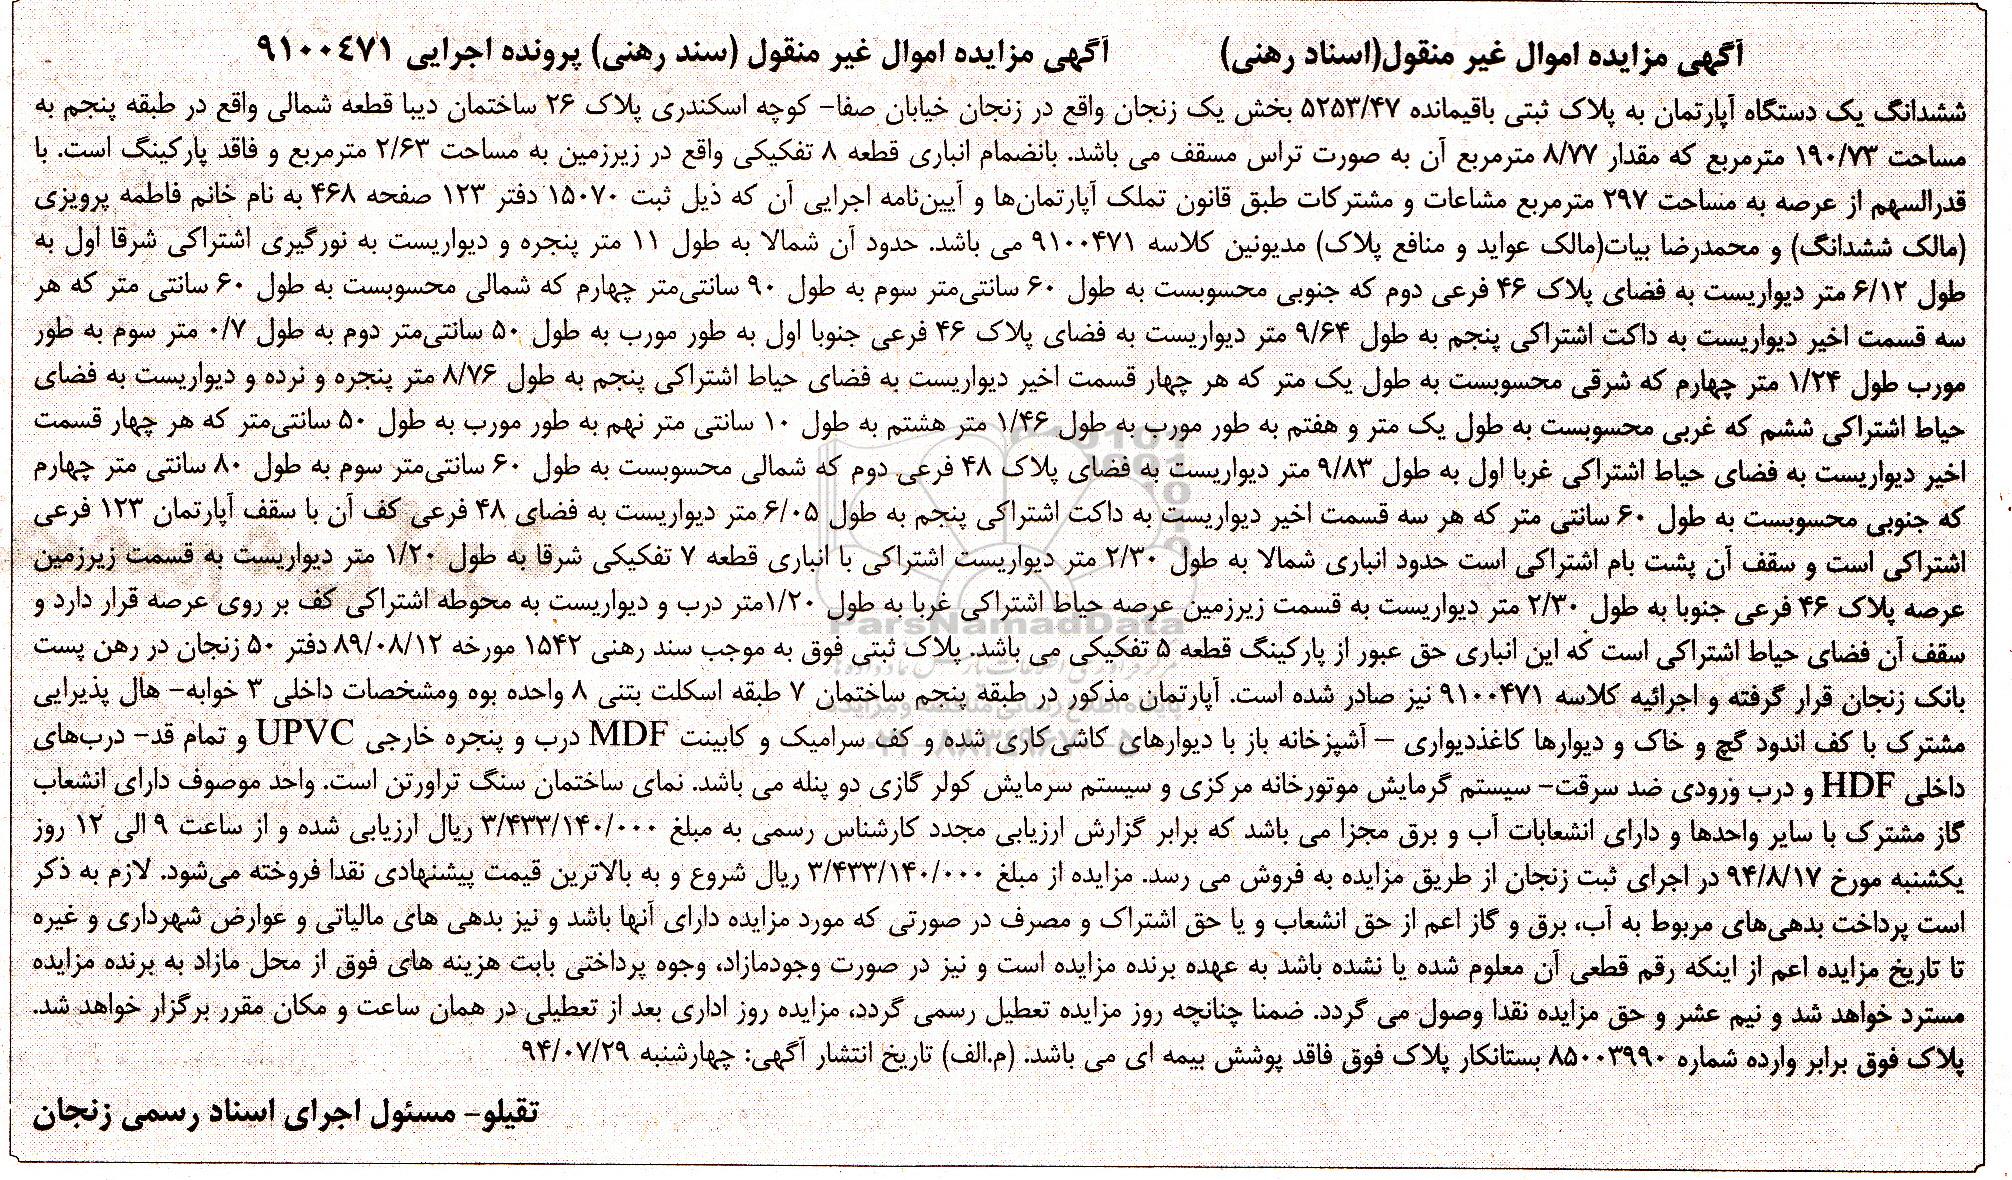 آگهی مزایده اموال غیر منقول(اسناد رهنی) آگهی مزایده اموال غیر منقول (سند رهنی) پرونده اجرایی ۹۱۰۰۴۷۱
ششدانگ یک دستگاه آپارتمان به پلاک ثبتی باقیمانده ۵۲۵۳/۴۷ بخش یک زنجان واقع در زنجان خیابان صفا- کوچه اسکندری پلاک ۲۶ ساختمان دیبا قطعه شمالی واقع در طبقه پنجم به
مساحت ۱۹۰/۷۳ مترمربع که مقدار ۸/۷۷ مترمربع آن به صورت تراس مسقف می باشد. بانضمام انباری قطعه ۸ تفکیکی واقع در زیرزمین به مساحت ۲/۶۳ مترمربع و فاقد پارکینگ است. با
قدرالسهم از عرصه به مساحت ۲۹۷ مترمربع مشاعات و مشترکات طبق قانون تملک آپارتمان‌ها و آیین‌نامه اجرایی آن که ذیل ثبت ۱۵۰۷۰ دفتر ۱۲۳ صفحه ۴۶۸ به نام خانم فاطمه پرویزی
(مالک ششدانگ) و محمدرضا بیات(مالک عواید و منافع پلاک) مدیونین کلاسه ۹۱۰۰۴۷۱ می باشد. حدود آن شمالا به طول ۱۱ متر پنجره و دیواریست به نورگیری اشتراکی شرقا اول به
طول ۶/۱۲ متر دیواریست به فضای پلاک ۴۶ فرعی دوم که جنوبی محسوبست به طول ۶۰ سانتی‌متر سوم به طول ۹۰ سانتی‌متر چهارم که شمالی محسوبست به طول ۶۰ سانتی متر که هر
سه قسمت اخیر دیواریست به داکت اشتراکی پنجم به طول ۹/۶۴ متر دیواریست به فضای پلاک ۴۶ فرعی جنوبا اول به طور مورب به طول ۵۰ سانتی‌متر دوم به طول ۰/۷ متر سوم به طور
مورب طول ۱/۲۴ متر چهارم که شرقی محسوبست به طول یک متر که هر چهار قسمت اخیر دیواریست به فضای حیاط اشتراکی پنجم به طول ۸/۷۶ متر پنجره و نرده و دیواریست به فضای
حیاط اشتراکی ششم که غربی محسوبست به طول یک متر و هفتم به طور مورب به طول ۱/۴۶ متر هشتم به طول ۱۰ سانتی متر نهم به طور مورب به طول ۵۰ سانتی‌متر که هر چهار قسمت
اخیر دیواریست به فضای حیاط اشتراکی غربا اول به طول ۹/۸۳ متر دیواریست به فضای پلاک ۴۸ فرعی دوم که شمالی محسوبست به طول ۶۰ سانتی‌متر سوم به طول ۸۰ سانتی متر چهارم
که جنوبی محسوبست به طول ۶۰ سانتی متر که هر سه قسمت اخیر دیواریست به داکت اشتراکی پنجم به طول ۶/۰۵ متر دیواریست به فضای ۴۸ فرعی کف آن با سقف آپارتمان ۱۲۳ فرعی
اشتراکی است و سقف آن پشت بام اشتراکی است حدود انباری شمالا به طول ۲/۳۰ متر دیواریست اشتراکی با انباری قطعه ۷ تفکیکی شرقا به طول ۱/۲۰ متر دیواریست به قسمت زیرزمین
عرصه پلاک ۴۶ فرعی جنوبا به طول ۲/۳۰ متر دیواریست به قسمت زیرزمین عرصه حیاط اشتراکی غربا به طول ۱/۲۰متر درب و دیواریست به محوطه اشتراکی کف بر روی عرصه قرار دارد و
سقف آن فضای حیاط اشتراکی است که این انباری حق عبور از پارکینگ قطعه ۵ تفکیکی می باشد. پلاک ثبتی فوق به موجب سند رهنی ۱۵۴۲ مورخه ۸۹/۰۸/۱۲ دفتر ۵۰ زنجان در رهن پست
بانک زنجان قرار گرفته و اجرائیه کلاسه ۹۱۰۰۴۷۱ نیز صادر شده است. آپارتمان مذکور در طبقه پنجم ساختمان ۷ طبقه اسکلت بتنی ۸ واحده بوه ومشخصات داخلی ۳ خوابه- هال پذیرایی
مشترک با کف اندود گچ و خاک و دیوارها کاغذدیواری – آشپزخانه باز با دیوارهای کاشی‌کاری شده و کف سرامیک و کابینت MDF درب و پنجره خارجی UPVC و تمام قد- درب‌های
داخلی HDF و درب ورودی ضد سرقت- سیستم گرمایش موتورخانه مرکزی و سیستم سرمایش کولر گازی دو پنله می باشد. نمای ساختمان سنگ تراورتن است. واحد موصوف دارای انشعاب
گاز مشترک با سایر واحدها و دارای انشعابات آب و برق مجزا می باشد که برابر گزارش ارزیابی مجدد کارشناس رسمی به مبلغ ۳/۴۳۳/۱۴۰/۰۰۰ ریال ارزیابی شده و از ساعت ۹ الی ۱۲ روز
یکشنبه مورخ ۹۴/۸/۱۷ در اجرای ثبت زنجان از طریق مزایده به فروش می رسد. مزایده از مبلغ ۳/۴۳۳/۱۴۰/۰۰۰ ریال شروع و به بالاترین قیمت پیشنهادی نقدا فروخته می‌شود. لازم به ذکر
است پرداخت بدهی‌های مربوط به آب، برق و گاز اعم از حق انشعاب و یا حق اشتراک و مصرف در صورتی که مورد مزایده دارای آنها باشد و نیز بدهی های مالیاتی و عوارض شهرداری و غیره
تا تاریخ مزایده اعم از اینکه رقم قطعی آن معلوم شده یا نشده باشد به عهده برنده مزایده است و نیز در صورت وجودمازاد، وجوه پرداختی بابت هزینه های فوق از محل مازاد به برنده مزایده
مسترد خواهد شد و نیم عشر و حق مزایده نقدا وصول می گردد. ضمنا چنانچه روز مزایده تعطیل رسمی گردد، مزایده روز اداری بعد از تعطیلی در همان ساعت و مکان مقرر برگزار خواهد شد.
پلاک فوق برابر وارده شماره ۸۵۰۰۳۹۹۰ بستانکار پلاک فوق فاقد پوشش بیمه ای می باشد. (م.الف) تاریخ انتشار آگهی: چهارشنبه ۹۴/۰۷/۲۹
تقیلو- مسئول اجرای اسناد رسمی زنجان
ParsNamadData